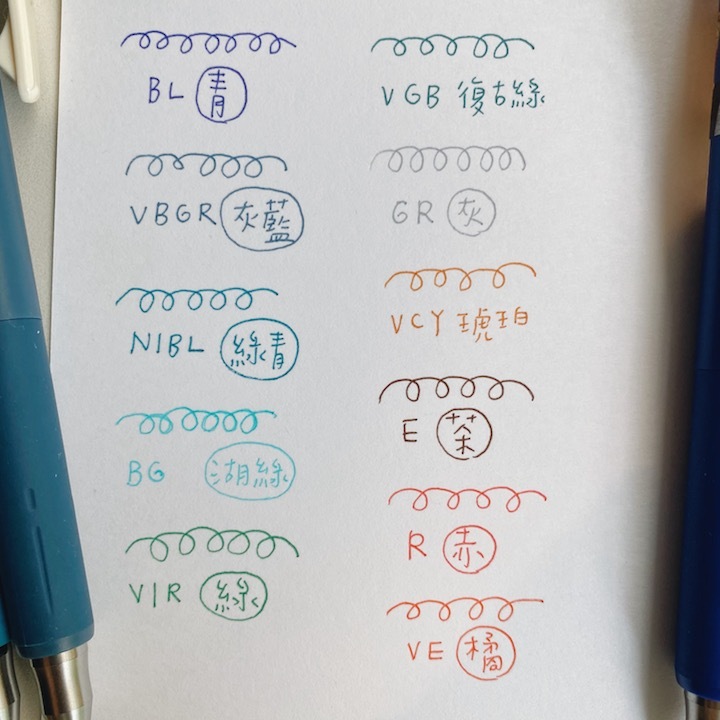 BL 青
VBGR 灰藍
NIBL 綠青
BG 湖綠
VIR 綠
VGB 復古綠
GR 灰
VCY 琥珀
E 茶
R 赤
VE 橘